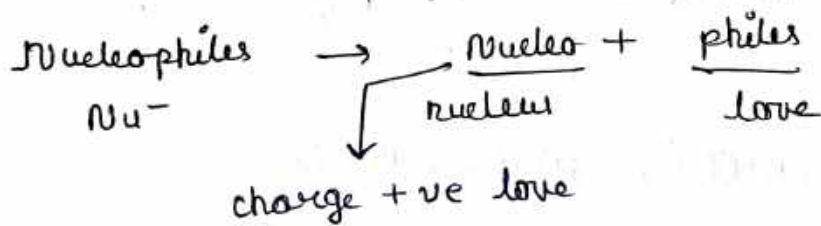 Nucleophiles → Nucleo + philes
Nu⁻ nucleus love
charge +ve love